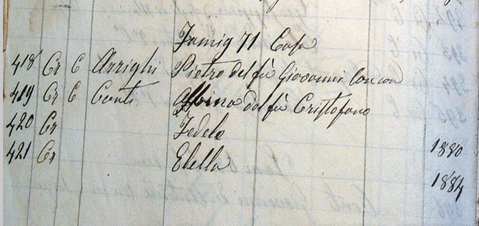 Famig 71 Casa
418 Cr C Arrighi Pietro del fù Giovanni
419 Cr C Conti Albina del fù Cristofano
420 Cr Fedele 1880
421 Cr Elella 1884